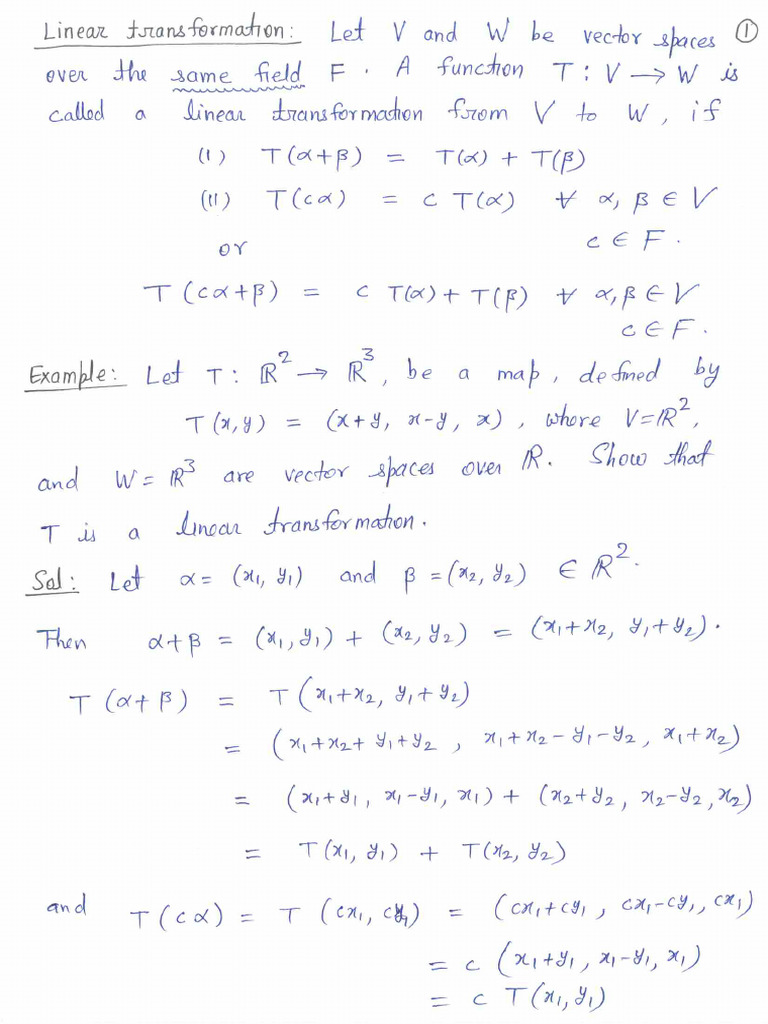 Linear transformation: Let V and W be vector spaces ①
over the same field F. A function T: V → W is
called a linear transformation from V to W, if
(I) T(α+β) = T(α) + T(β)
(II) T(cα) = c T(α) ∀ α, β ∈ V
or c ∈ F.
T(cα+β) = c T(α) + T(β) ∀ α, β ∈ V
c ∈ F.
Example: Let T: ℝ² → ℝ³, be a map, defined by
T(x,y) = (x+y, x-y, x), where V=ℝ²,
and W = ℝ³ are vector spaces over ℝ. Show that
T is a linear transformation.
Sol: Let α = (x₁, y₁) and β = (x₂, y₂) ∈ ℝ².
Then α+β = (x₁, y₁) + (x₂, y₂) = (x₁+x₂, y₁+y₂).
T(α+β) = T(x₁+x₂, y₁+y₂)
= (x₁+x₂+y₁+y₂, x₁+x₂-y₁-y₂, x₁+x₂)
= (x₁+y₁, x₁-y₁, x₁) + (x₂+y₂, x₂-y₂, x₂)
= T(x₁, y₁) + T(x₂, y₂)
and T(cα) = T(cx₁, cy₁) = (cx₁+cy₁, cx₁-cy₁, cx₁)
= c (x₁+y₁, x₁-y₁, x₁)
= c T(x₁, y₁)